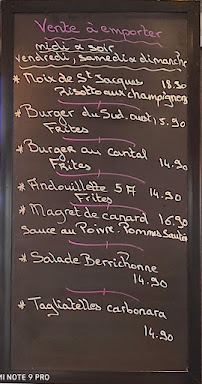 Vente à emporter
midi & soir
vendredi, samedi & dimanche
* Noix de St Jacques 18.90
Risotto aux champignons
* Burger du Sud.ouest 15.90
Frites
* Burger au cantal
Frites 14.90
* Andouillette 5A 14.90
Frites
* Magret de canard 16.90
Sauce au Poivre Pommes Sautés
* Salade Berrichonne
14.90
* Tagliatelles carbonara
14.90
MI NOTE 9 PRO